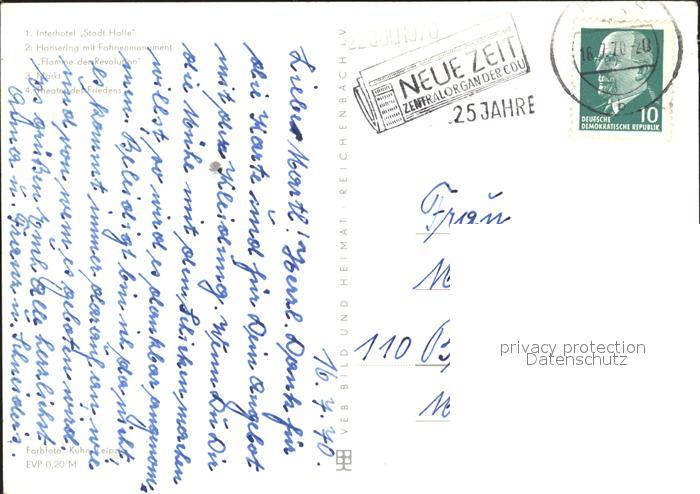 1. Interhotel „Stadt Halle"
2. Hansering mit Fahnenmonument
„Flamme der Revolution"
3. Markt
4. Theater des Friedens
16. 7. 70.
Liebe Martl! Herzl. Dank für
die Karte und für Dein Angebot
mit der Kleidung. Wenn Du Dir
die Mühe mit dem Schicken machen
willst, so wird es dankbar angenom-
men. Beleidigt bin ich da nicht,
es kommt immer darauf an wie
und von wem es geboten wird.
Es grüßen Euch alle herzlichst
Anna u. Schneider.
Farbfoto: Kühn, Leipzig
EVP 0,20 M
VEB BILD UND HEIMAT · REICHENBACH I. V.
22. JULI 1970
NEUE ZEIT
ZENTRALORGAN DER CDU
25 JAHRE
16.7.70-20
10
DEUTSCHE
DEMOKRATISCHE REPUBLIK
Frau
M
110 B
M
privacy protection
Datenschutz